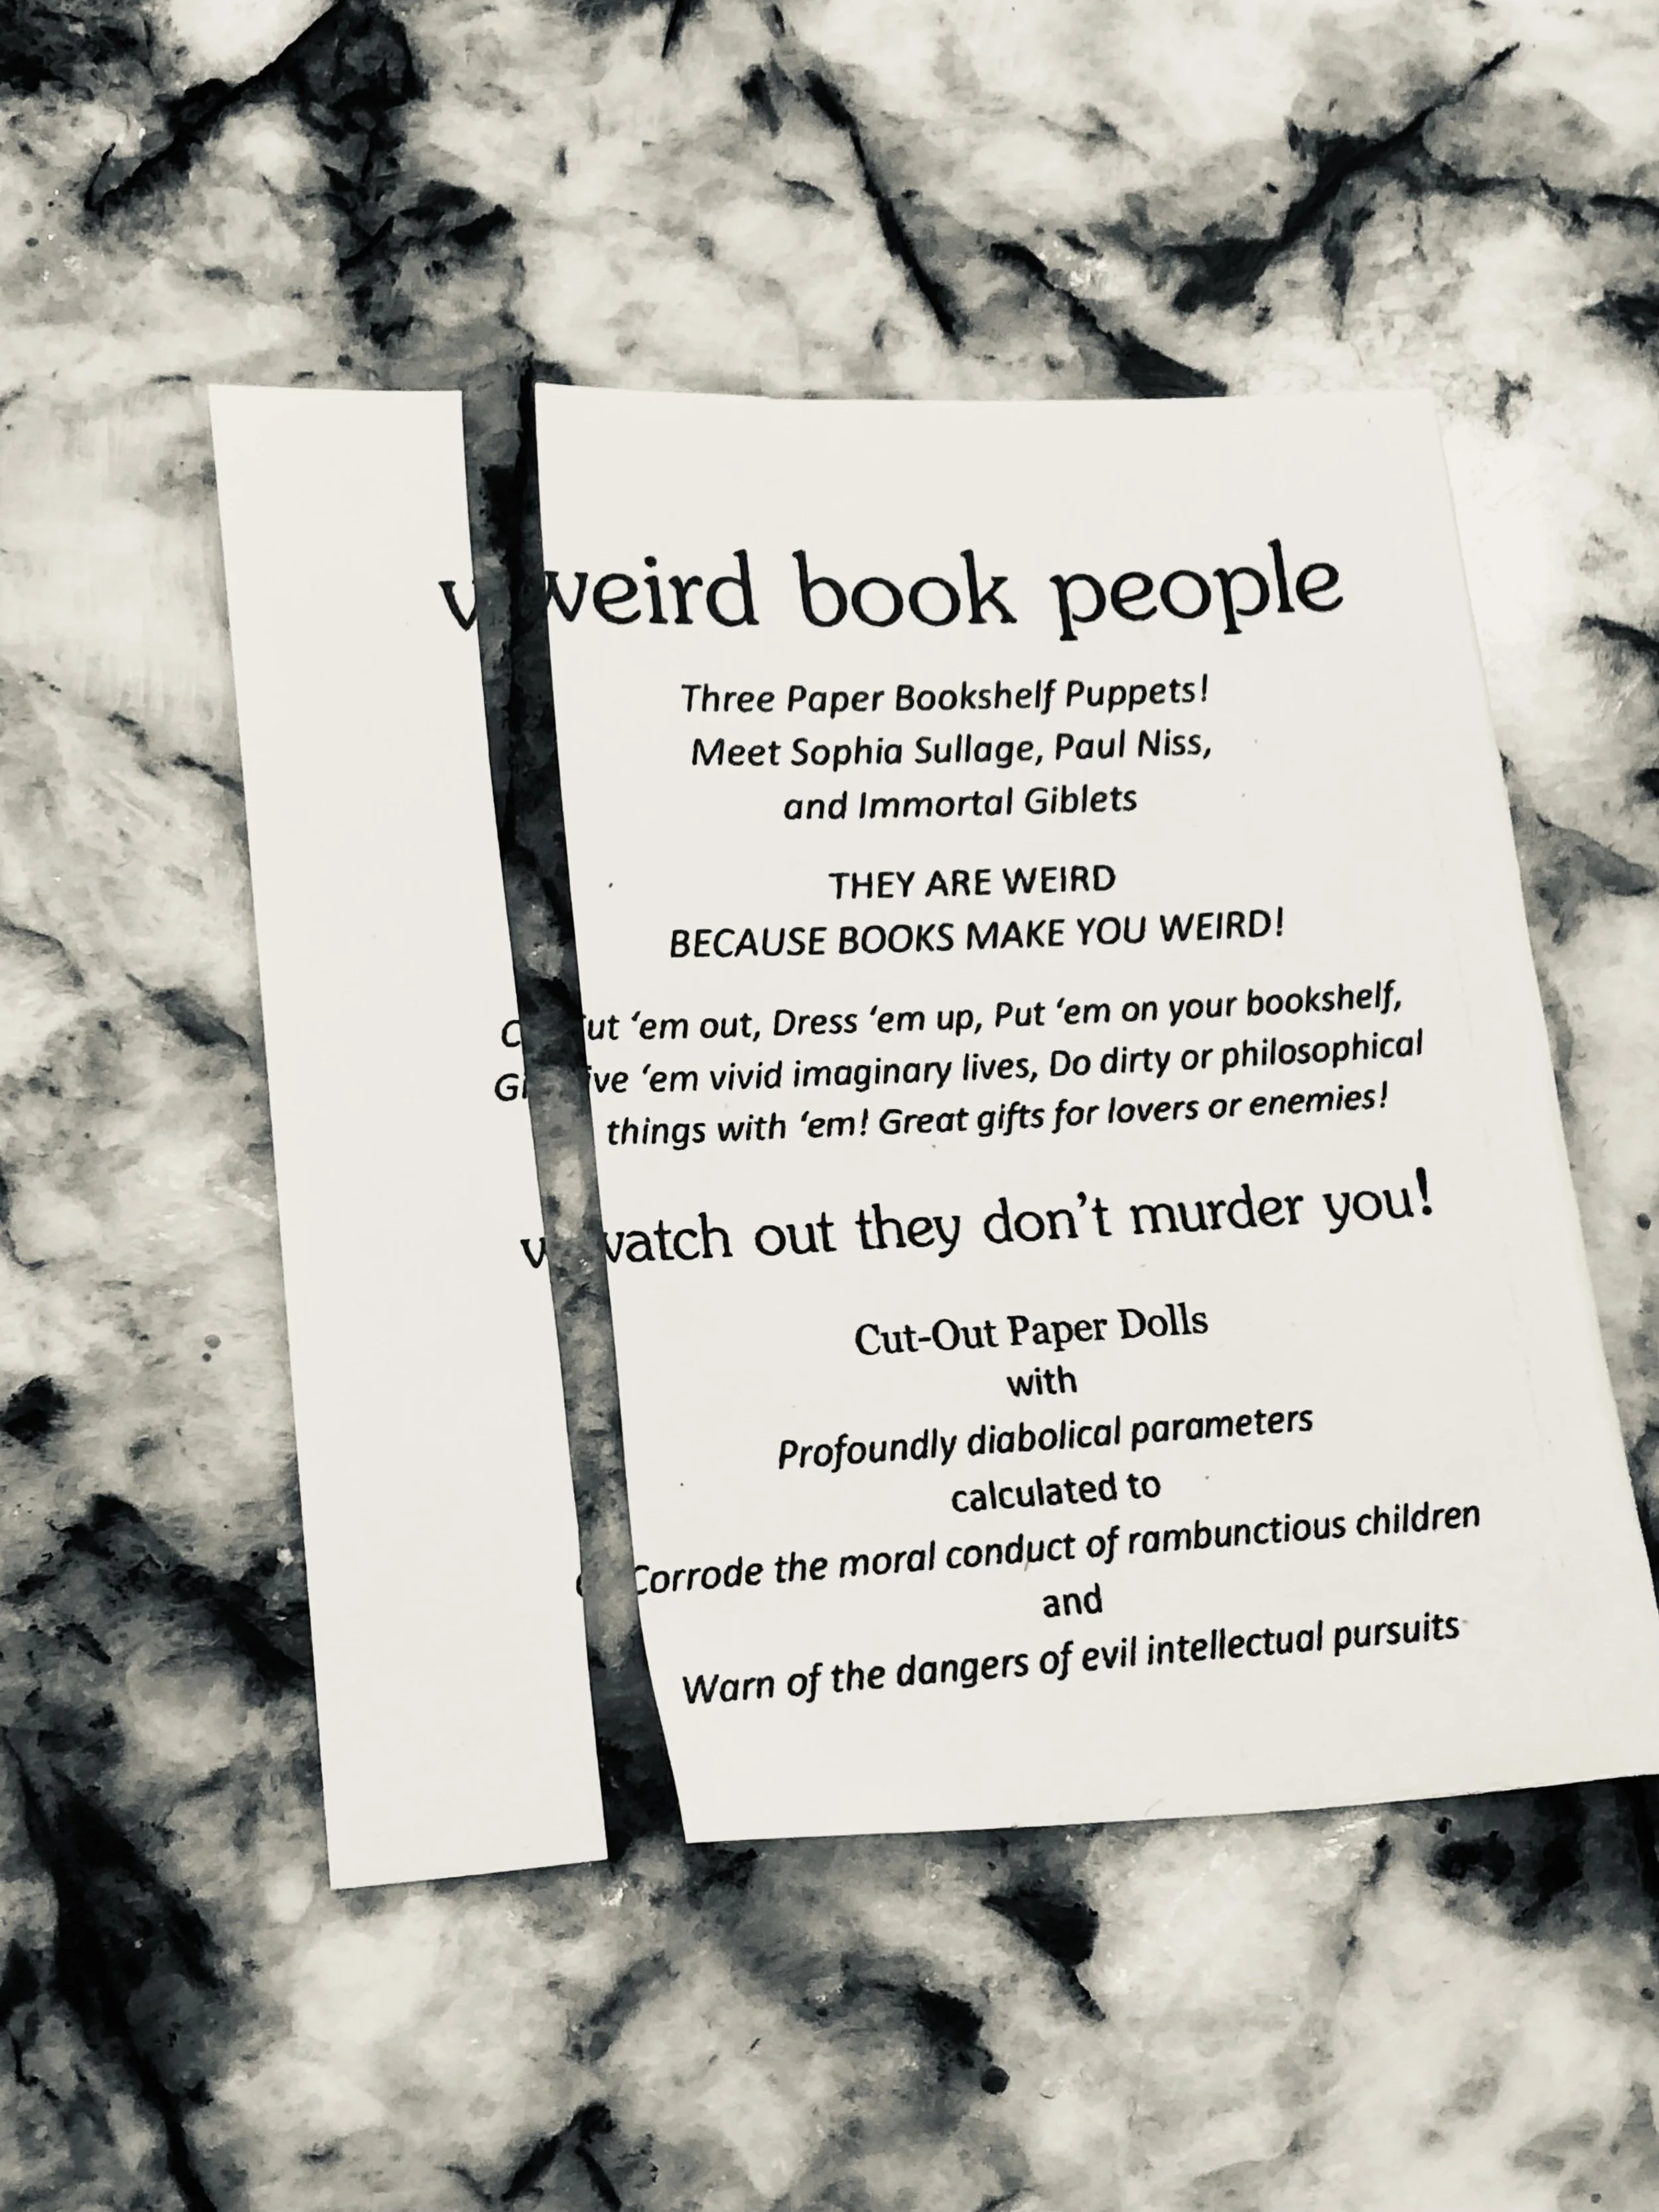 weird book people
Three Paper Bookshelf Puppets!
Meet Sophia Sullage, Paul Niss,
and Immortal Giblets
THEY ARE WEIRD
BECAUSE BOOKS MAKE YOU WEIRD!
Cut ‘em out, Dress ‘em up, Put ‘em on your bookshelf,
Give ‘em vivid imaginary lives, Do dirty or philosophical
things with ‘em! Great gifts for lovers or enemies!
watch out they don’t murder you!
Cut-Out Paper Dolls
with
Profoundly diabolical parameters
calculated to
Corrode the moral conduct of rambunctious children
and
Warn of the dangers of evil intellectual pursuits